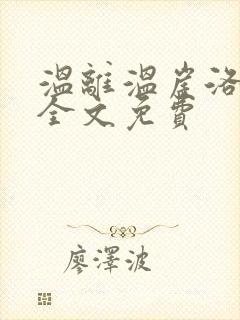 溫離溫崖洛
全文免費
廖澤波